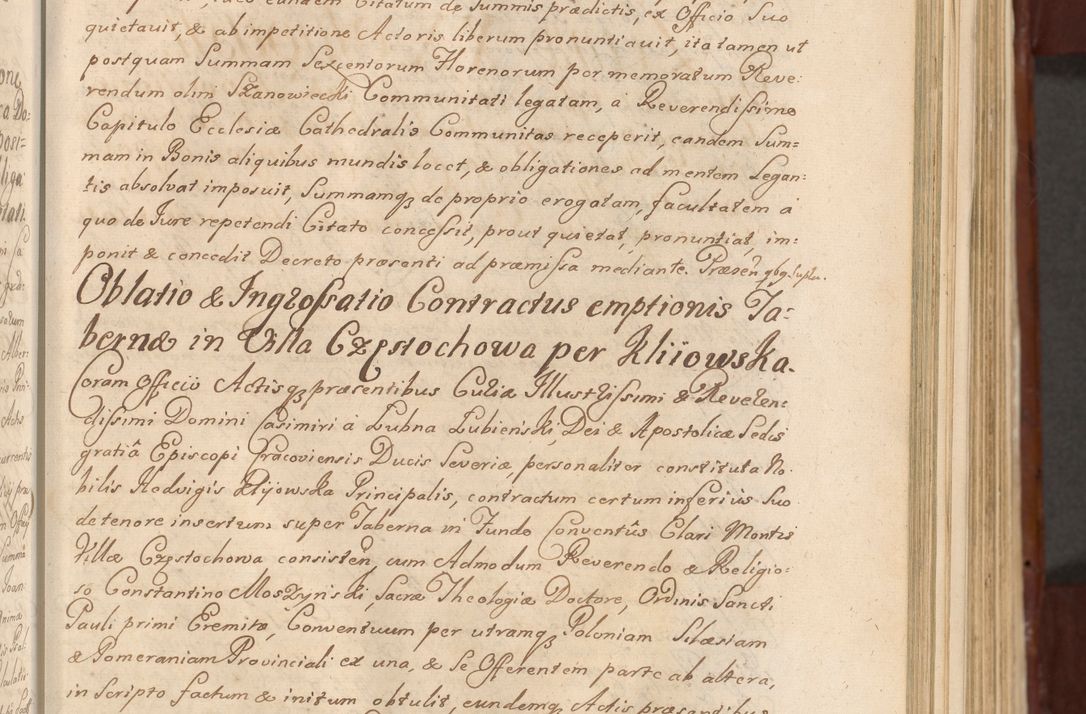 eundem Citatum de Summis prædictis, ex Officio Suo
quietavit, & ab impetitione Actoris liberum pronuntiavit, ita tamen ut
postquam Summam Sexcentorum Florenorum per memoratum Reve:
rendum olim Szanowiecki Communitati legatam, á Reverendissimo
Capitulo Ecclesiæ Cathedralis Communitas receperit, eandem Sum=
mam in Bonis aliquibus mundis locet, & obligationes ad mentem Legan:
tis absolvat imposuit, Summamq3 de proprio erogatam, facultatem á
quo de Jure repetendi Citato concessit, prout quietat, pronuntiat, im:
ponit & concedit Decreto præsenti ad præmissa mediante. Præsen̄
Oblatio & Ingrossatio Contractus emptionis Ta=
bernæ in Villa Częstochowa per Kliiowska.
Coram Officio Actisq3 præsentibus Curiæ Illustrissimi & Reveren:
dissimi Domini Casimiri á Łubna Łubieński, Dei & Apostolicæ Sedis
gratiâ Episcopi Cracoviensis Ducis Severiæ, personaliter constituta No:
bilis Hedvigis Klijowska Principalis, contractum certum inferiùs Suo
de tenore insertum super Taberna in Fundo Conventûs Clari Montis
Villæ Częstochowa consisten̄, cum Admodum Reverendo & Religio:
so Constantino Moszyński, Sacræ Theologiæ Doctore, Ordinis Sancti
Pauli primi Eremitæ, Conventuum per utramq3 Poloniam Silæsiam
& Pomeraniam Provinciali ex una, & Se Offerentem parte ab altera,
in Scripto factum & initum obtulit, eundemq3 Actis præsentibus